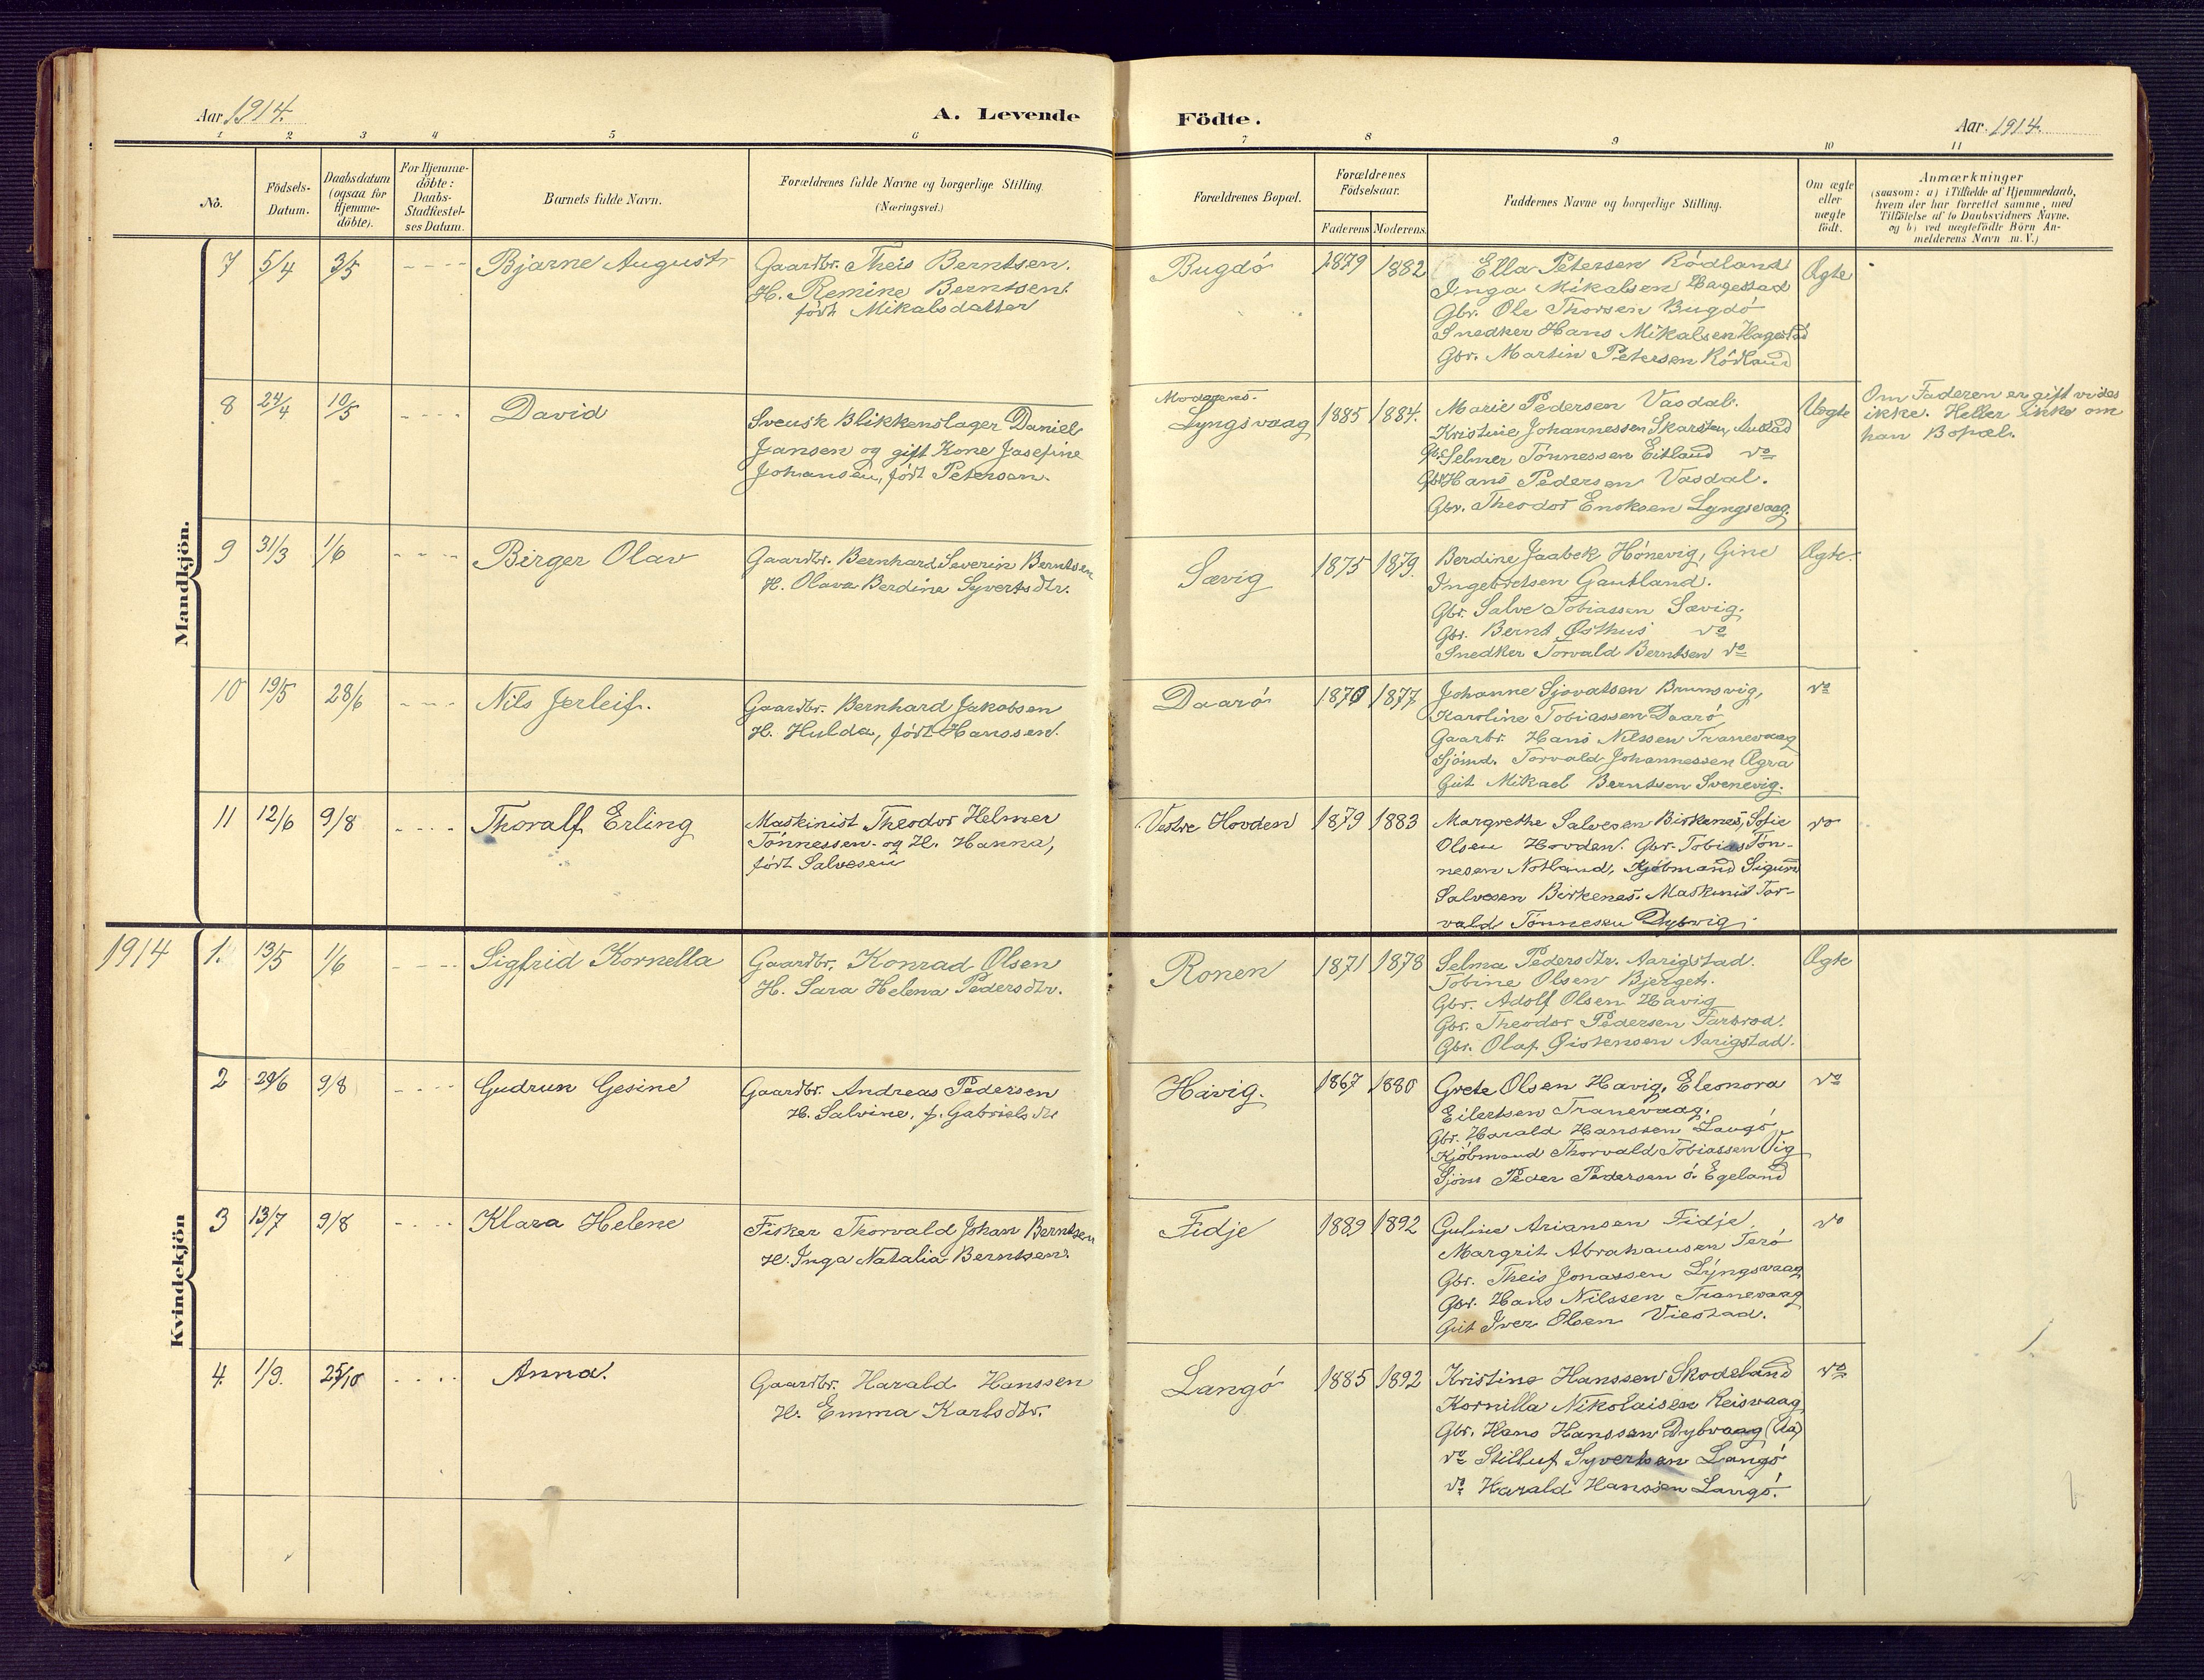 Aar 1914.
A. Levende Födte.
Aar 1914.
1 2 3 4 5 6 7 8 9 10 11
No.
Födsels-
Datum.
Daabsdatum
(ogsaa for
Hjemme-
döbte).
For Hjemme-
döbte:
Daabs-
Stadfæstel-
ses Datum.
Barnets fulde Navn.
Forældrenes fulde Navne og borgerlige Stilling.
(Næringsvei.)
Forældrenes Bopæl.
Forældrenes
Födselsaar.
Faderens Moderens.
Faddernes Navne og borgerlige Stilling.
Om ægte
eller
uægte
födt.
Anmærkninger
(saasom: a) i Tilfælde af Hjemmedaab,
hvem der har forrettet samme, med
Tilföielse af to Daabsvidners Navne.
og b) ved uægtefödte Börn An-
melderens Navn m. V.)
Mandkjön.
7 5/4 3/5 - - - - Bjarne August
Gaardbr. Theis Berntsen.
H. Remine Berntsen.
födt Mikalsdatter
Bugdó 1879 1882
Ella Petersen Ródland
Inga Mikalsen Hagestad
Gbr. Ole Thorsen Bugdó
Snedker Hans Mikalsen Hagestad
Gbr. Martin Petersen Ródland
Ægte
8 24/4 10/5 - - - - David
Svensk Blikkenslager Daniel
Jansen og gift Kone Josefine
Johansen, fódt Petersen.
Moderens.
Lyngsvaag 1885 1884.
Marie Pedersen Vasdal.
Kristine Johannessen Skarsten, Austad
Gbr. Selmer Tónnessen Eitland do
Gbr Hans Pedersen Vasdal.
Gbr. Theodor Enoksen Lyngsvaag.
Uægte
Om Faderen er gift vides
ikke. Heller ikke om
han Bopæl.
9 31/3 1/6 - - - - Birger Olav
Gaardbr. Bernhard Severin Berntsen
H. Olava Berdine Syvertsdtr.
Sævig 1875 1879.
Berdine Jaabek Hónevig, Gine
Ingebretsen Gautland.
Gbr. Salve Tobiassen Sævig.
Gbr. Bernt Østhus do
Snedker Torvald Berntsen do
Ægte.
10 19/5 28/6 - - - Nils Jerleif.
Gaardbr. Bernhard Jakobsen
H. Hulda, fódt Hanssen.
Daaró 1870 1877
Johanne Sjovatsen Brunsvig,
Karoline Tobiassen Daaró,
Gaardbr. Hans Nilssen Tranevaag
Sjómd. Torvald Johannessen Ægra
Gut Mikael Berntsen Svenevig.
do
11 12/6 9/8 - - - - Thoralf Erling
Maskinist Theodor Helmer
Tónnessen og H. Hanna,
fódt Salvesen
Vestre Hovden 1879 1883
Margrethe Salvesen Birkenes, Sofie
Olsen Hovden. Gbr. Tobias Tón-
nesen Notland, Kjóbmand Sigurd
Salvesen Birkenes. Maskinist Tor-
vald Tónnesen Dybvig.
do
Kvindekjön
1914 1. 13/5 1/6 - - - - Sigfrid Kornella
Gaardbr. Konrad Olsen
H. Sara Helena Pedersdtr.
Ronen 1871 1878
Selma Pedersdtr. Aarigstad.
Tobine Olsen Bjerget.
Gbr. Adolf Olsen Havig
Gbr. Theodor Pedersen Farbrod.
Gbr. Olaf Øistensen Aarigstad.
Ægte
2 29/6 9/8 - - - - Gudrun Gesine
Gaardbr. Andreas Pedersen
H. Salvine, f. Gabrielsdtr
Hávig. 1867 1880
Grete Olsen Havig, Eleonora
Eilertsen Tranevaag.
Gbr. Harald Hanssen Langó,
Kjóbmand Thorvald Tobiassen Vig
Sjóm Peder Pedersen ó. Egeland
do
3 13/7 9/8 - - - - Klara Helene
Fisker Thorvald Johan Berntsen
H. Inga Natalia Berntsen.
Fidje 1889 1892
Guline Ariansen Fidje
Margrit Abrahamsen Teró
Gbr. Theis Jonassen Lyngsvaag
Gbr. Hans Nilssen Tranevaag
Gut Iver Olsen Viestad.
do
4. 1/9. 25/10 - - - - Anna.
Gaardbr. Harald Hanssen
H. Emma Karlsdtr.
Langó 1885 1892
Kristine Hanssen Skodeland
Kornilla Nikolaisen Reisvaag
Gbr. Hans Hanssen Dybvaag (Aa)
do Stilluf Syvertsen Langó
do Harald Hanssen Langó.
do